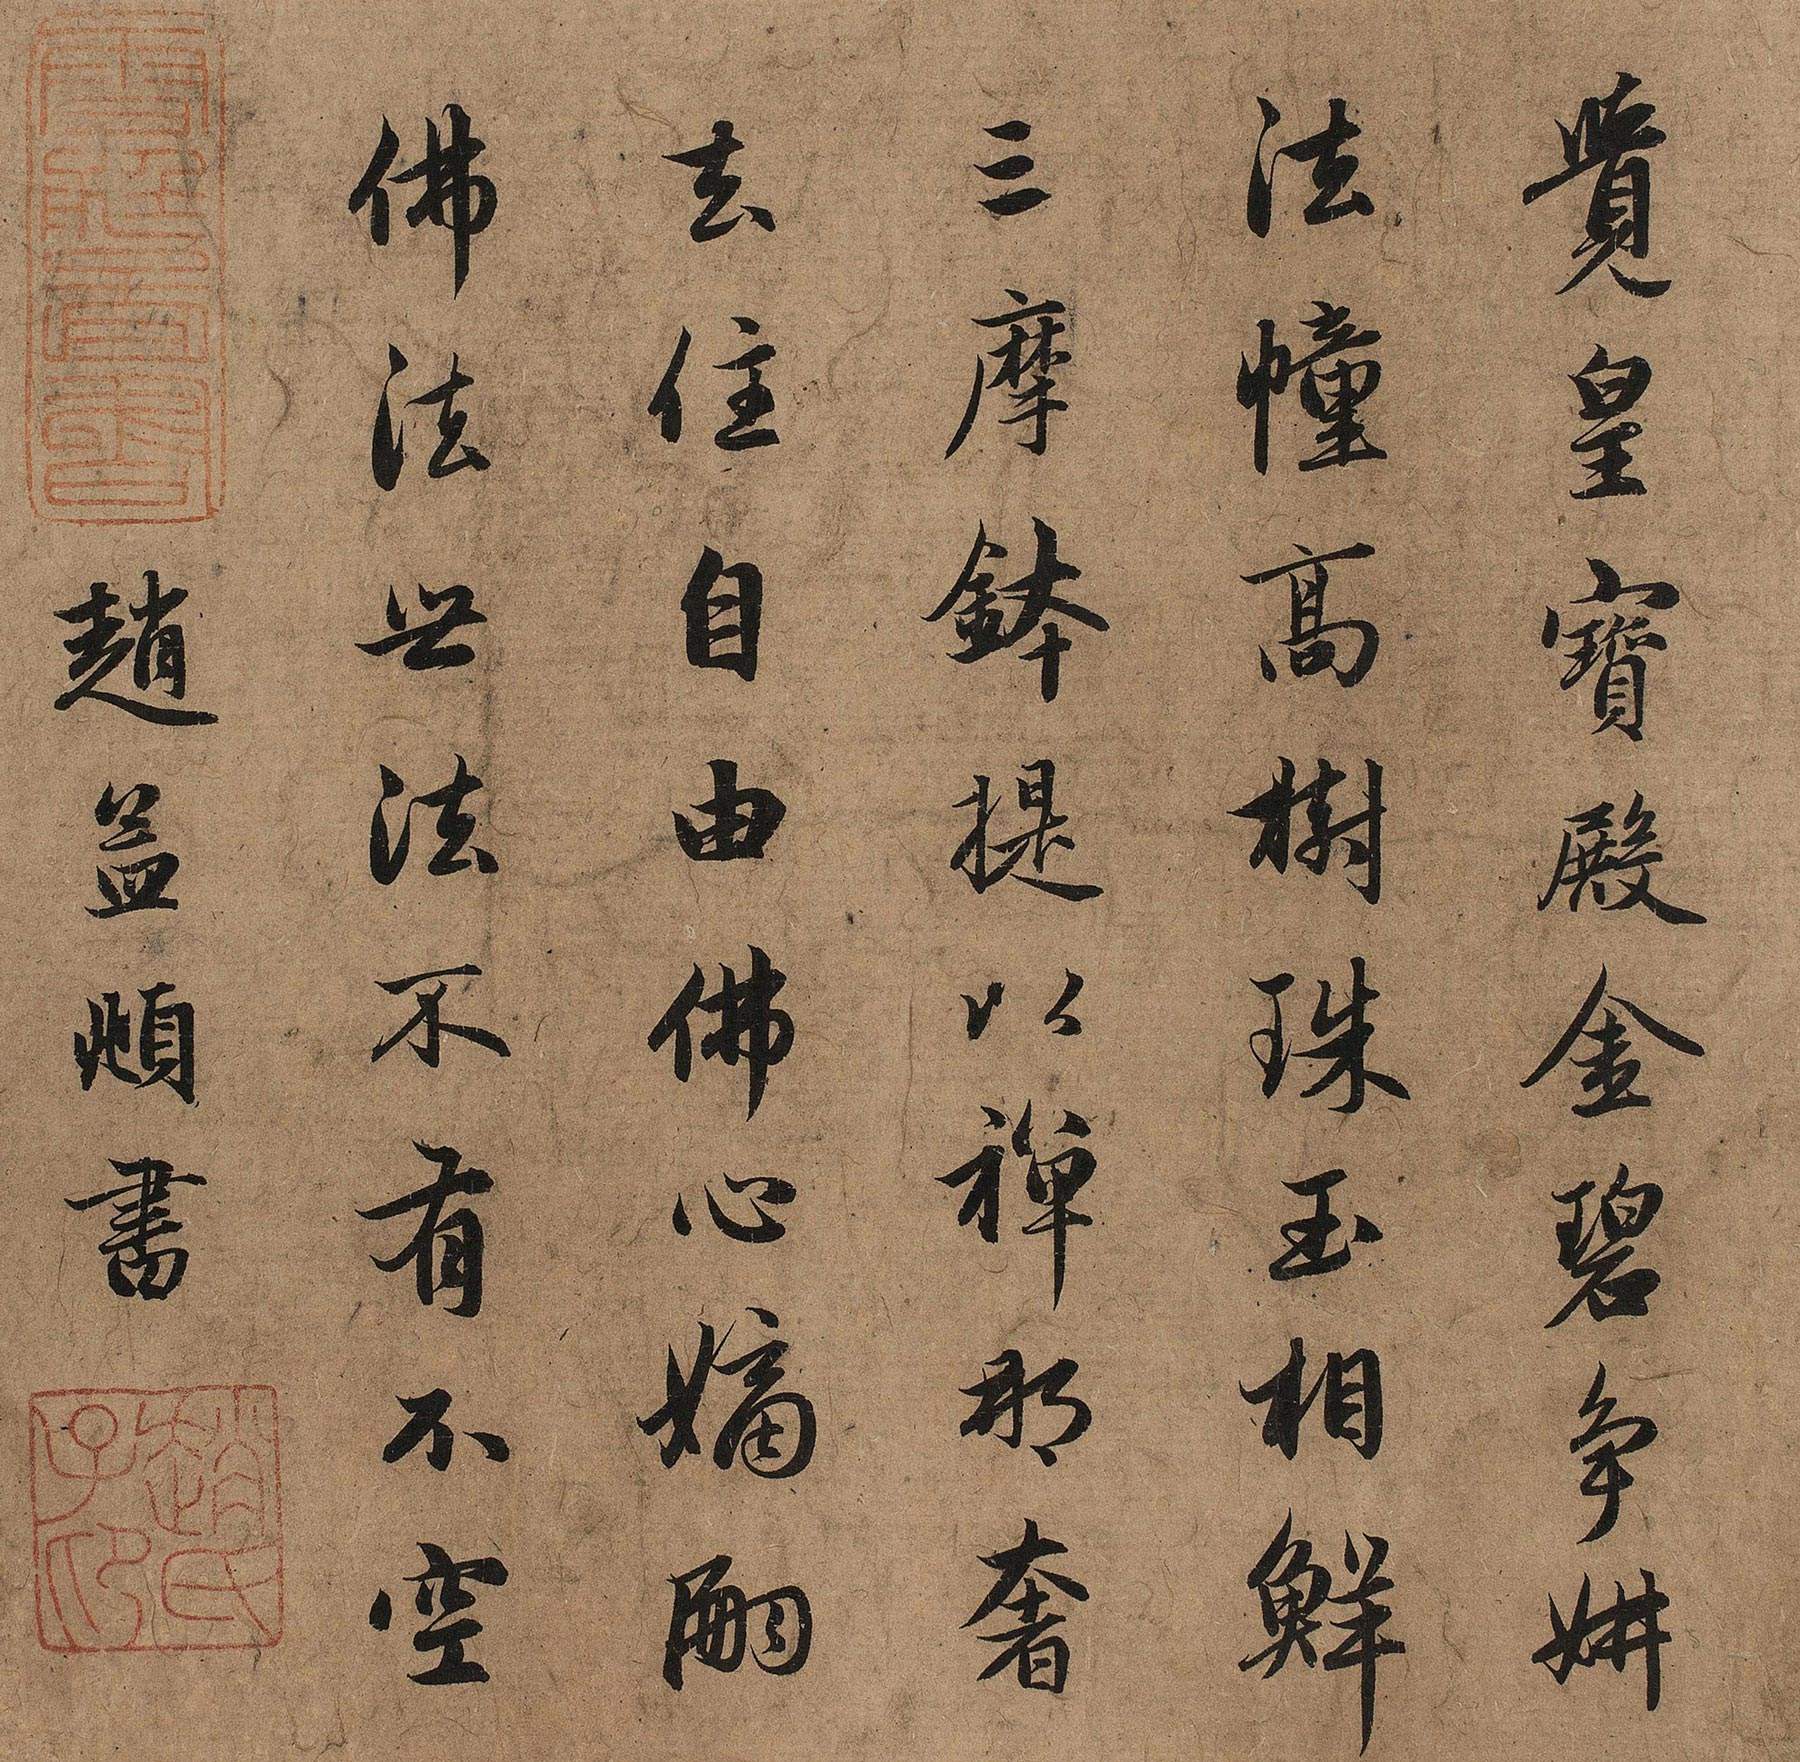 覺皇寶殿金碧争妍
法幢高樹珠玉相鮮
三摩鉢提以禅那奢
去住自由佛心嫡嗣
佛法無法不有不空
趙孟頫書
趙氏子印